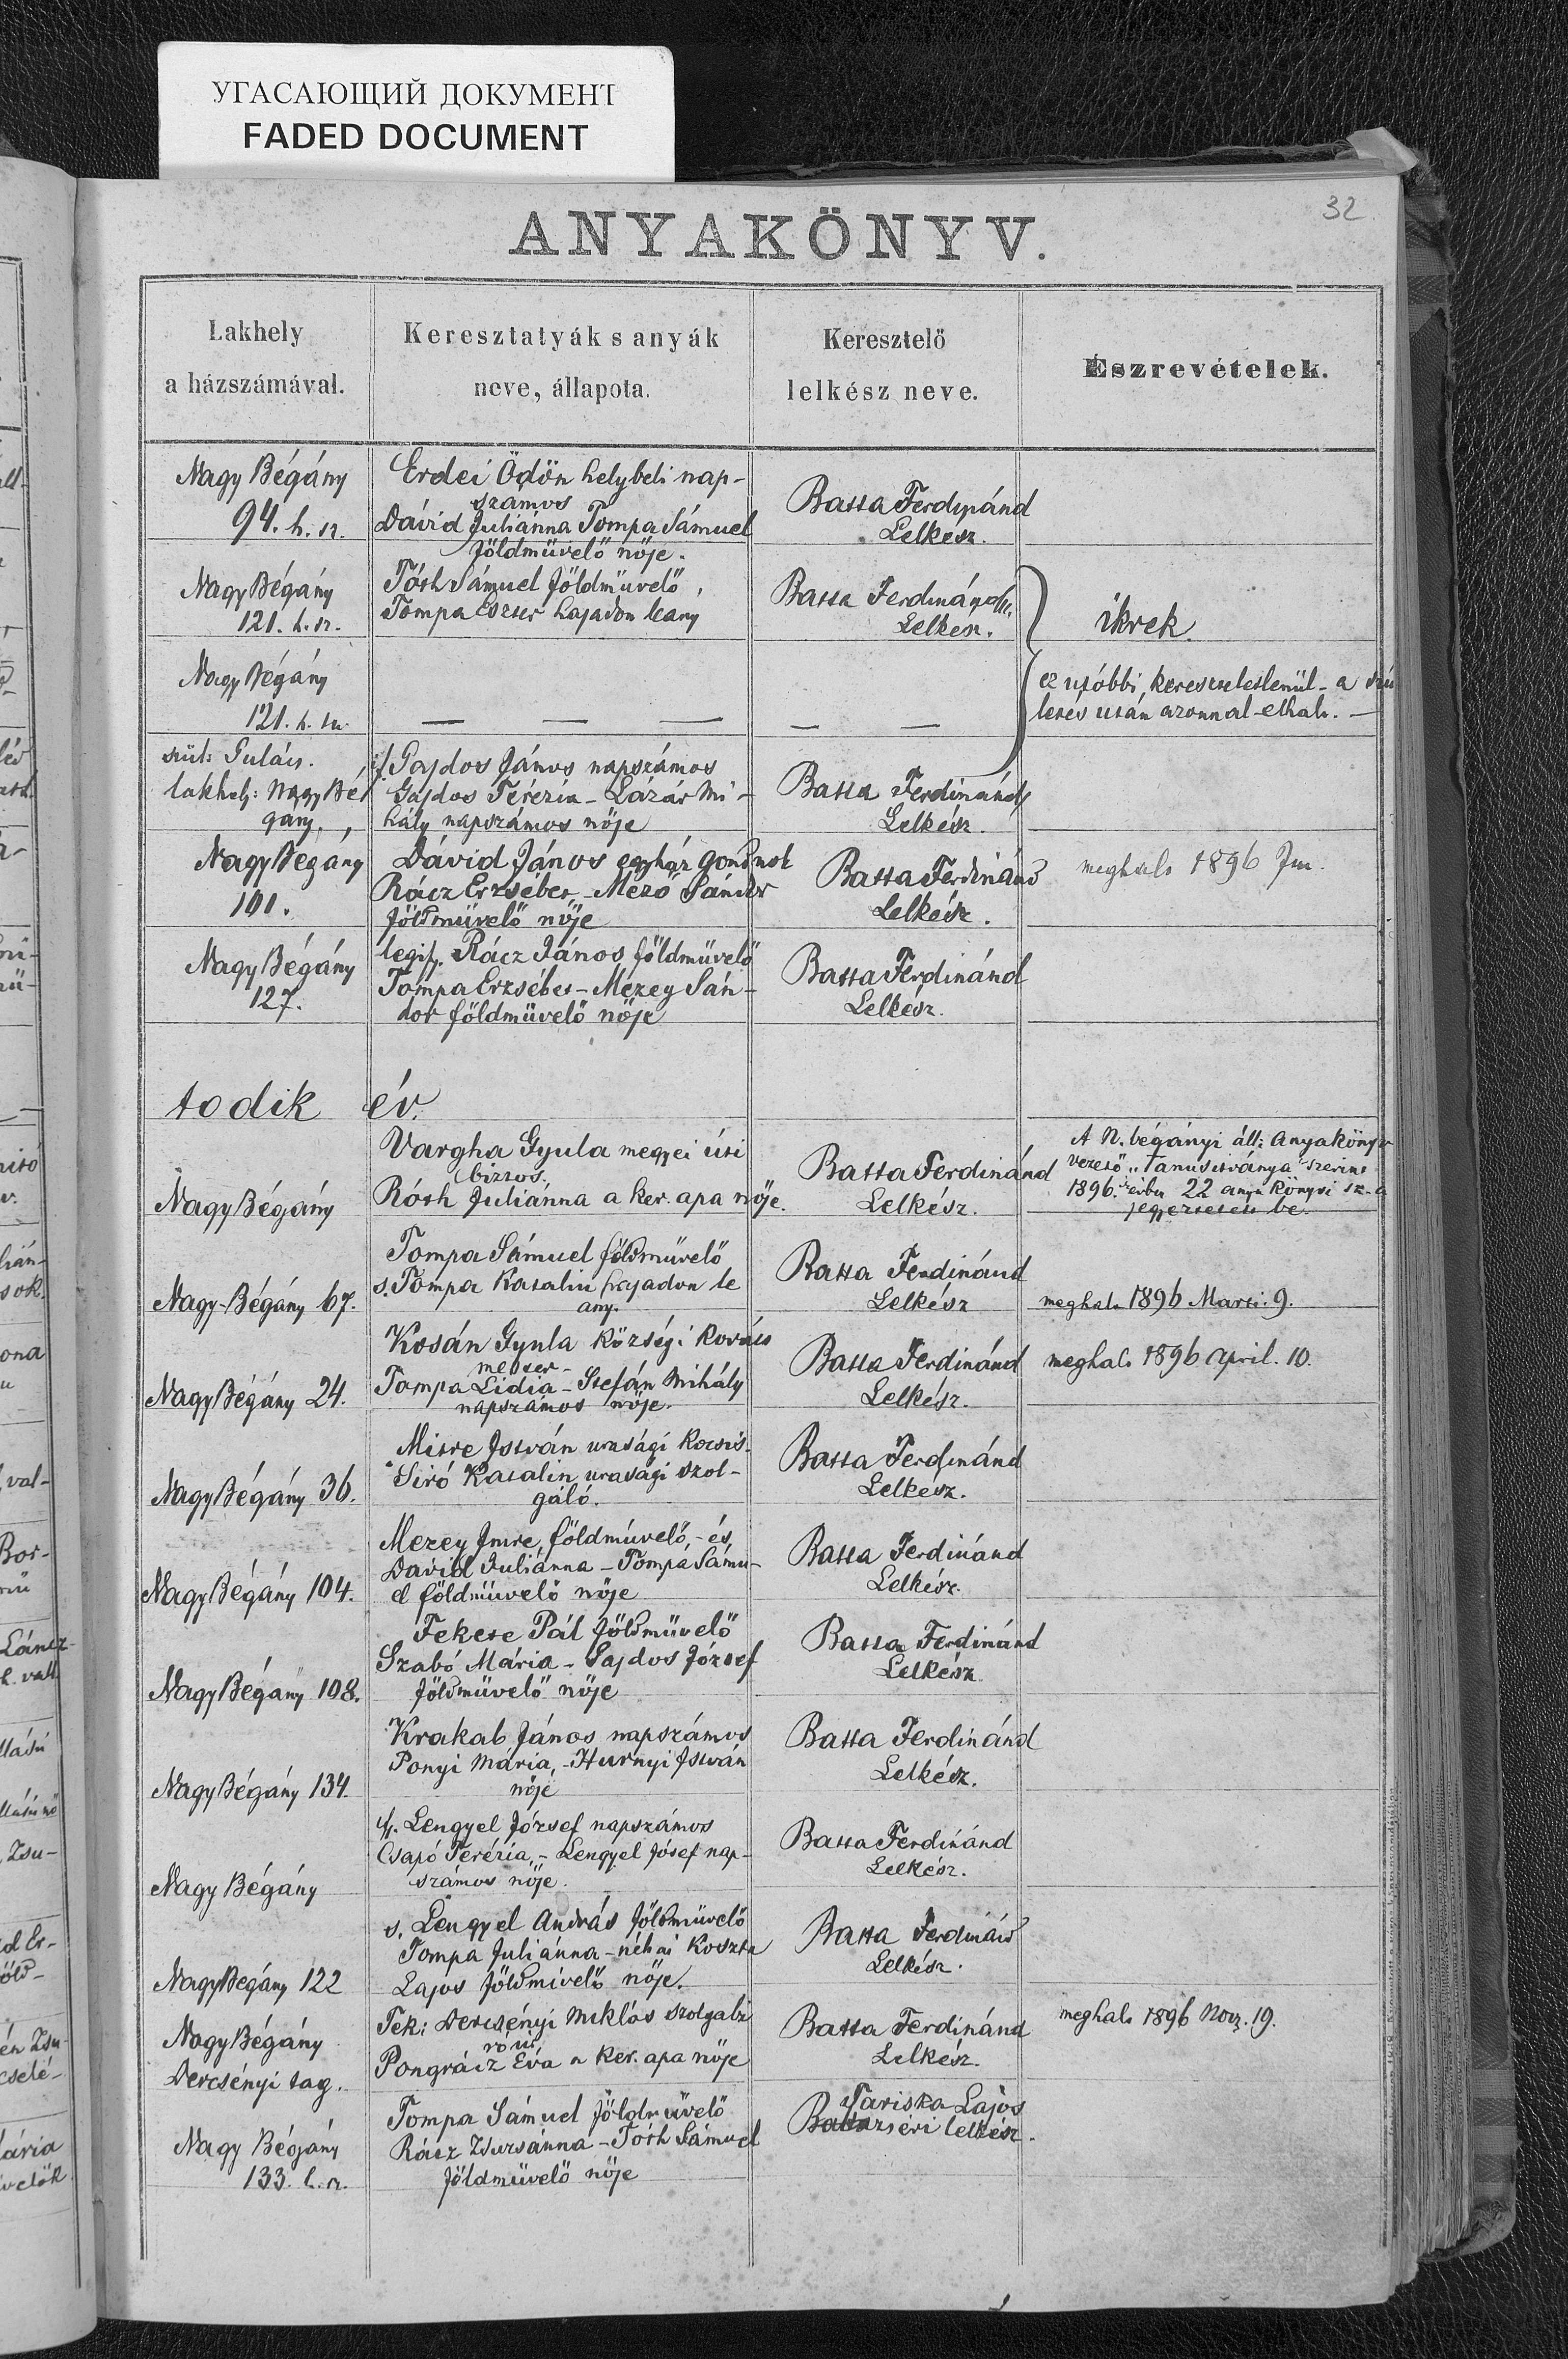 УГАСАЮЩИЙ ДОКУМЕНТ
FADED DOCUMENT
32
ANYAKÖNYV.
Lakhely
a házszámával.
Keresztatyák s anyák
neve, állapota.
Keresztelő
lelkész neve.
Észrevételek.
Nagy Bégány
94. h. sz.
Erdei Ödön helybeli nap-
számos
Dávid Juliánna Tompa Sámuel
földmüvelő nője.
Batta Ferdinánd
Lelkész.
Nagy Bégány
121. h. sz.
Tóth Sámuel földmüvelő,
Tompa Eszter hajadon leany
Batta Ferdinánd
Lelkész.
ikrek.
Nagy Bégány
121. h. sz.
— — —
— —
ez utóbbi, kereszteletlenül - a szü
letés után azonnal elhalt. —
szül: Gulács.
lakhely: Nagy Bé
gány.
if. Gajdos János napszámos
Gajdos Terézia - Lázár Mi-
hály napszámos nője
Batta Ferdinánd
Lelkész.
Nagy Bégány
101.
Dávid János egyház gondnok
Rácz Erzsébet, - Mező Sándor
földmüvelő nője
Batta Ferdinánd
Lelkész.
meghalt 1896 Jun.
Nagy Bégány
127.
legif. Rácz János földmüvelő
Tompa Erzsébet - Mézey Sán-
dor földmüvelő nője
Batta Ferdinánd
Lelkész.
todik év.
Nagy Bégány
Vargha Gyula megyei úti
biztos.
Róth Juliánna a ker. apa nője.
Batta Ferdinánd
Lelkész.
A N. bégányi áll: Anyakönyv
vezető „Tanusitványa" szerint
1896. évben 22 anya könyvi sz. a
jegyeztetett be.
Nagy-Bégány 67.
Tompa Sámuel földmüvelő
s. Tompa Katalin hajadon le
any.
Batta Ferdinánd
Lelkész
meghalt 1896 Marti. 9.
Nagy Bégány 24.
Kosán Gyula községi kovács
mester -
Tompa Lidia - Stefán Mihály
napszámos nője.
Batta Ferdinánd
Lelkész.
meghalt 1896 April. 10.
Nagy Bégány 36.
Mitre István urasági kocsis.
Siró Katalin urasági szol-
gáló.
Batta Ferdinánd
Lelkész.
Nagy Bégány 104.
Mezey Imre, földmüvelő, - és
Dávid Juliánna - Tompa Sámu-
el földmüvelő nője
Batta Ferdinánd
Lelkész.
Nagy Bégány 108.
Fekete Pál földmüvelő
Szabó Mária - Gajdos József
földmüvelő nője
Batta Ferdinánd
Lelkész
Nagy Bégány 134.
Krakab János napszámos
Ponyi Mária, - Hurnyi István
nője
Batta Ferdinánd
Lelkész.
Nagy Bégány
if. Lengyel József napszámos
Csapó Terézia, - Lengyel József nap-
számos nője.
Batta Ferdinánd
Lelkész.
Nagy Bégány 122
s. Lengyel András földmüvelő
Tompa Juliánna - néhai Koszta
Lajos földmivelő nője.
Batta Ferdinánd
Lelkész.
Nagy Bégány
Dercsényi tag.
Tek: Dercsényi Miklós szolgabi
ró úr
Pongrácz Éva a ker. apa nője
Batta Ferdinánd
Lelkész.
meghalt 1896 Nov. 19.
Nagy Bégány
133. h. sz.
Tompa Sámuel földmüvelő
Rácz Zsuzsánna - Tóth Sámuel
földmüvelő nője
Tariska Lajos
lelkész.